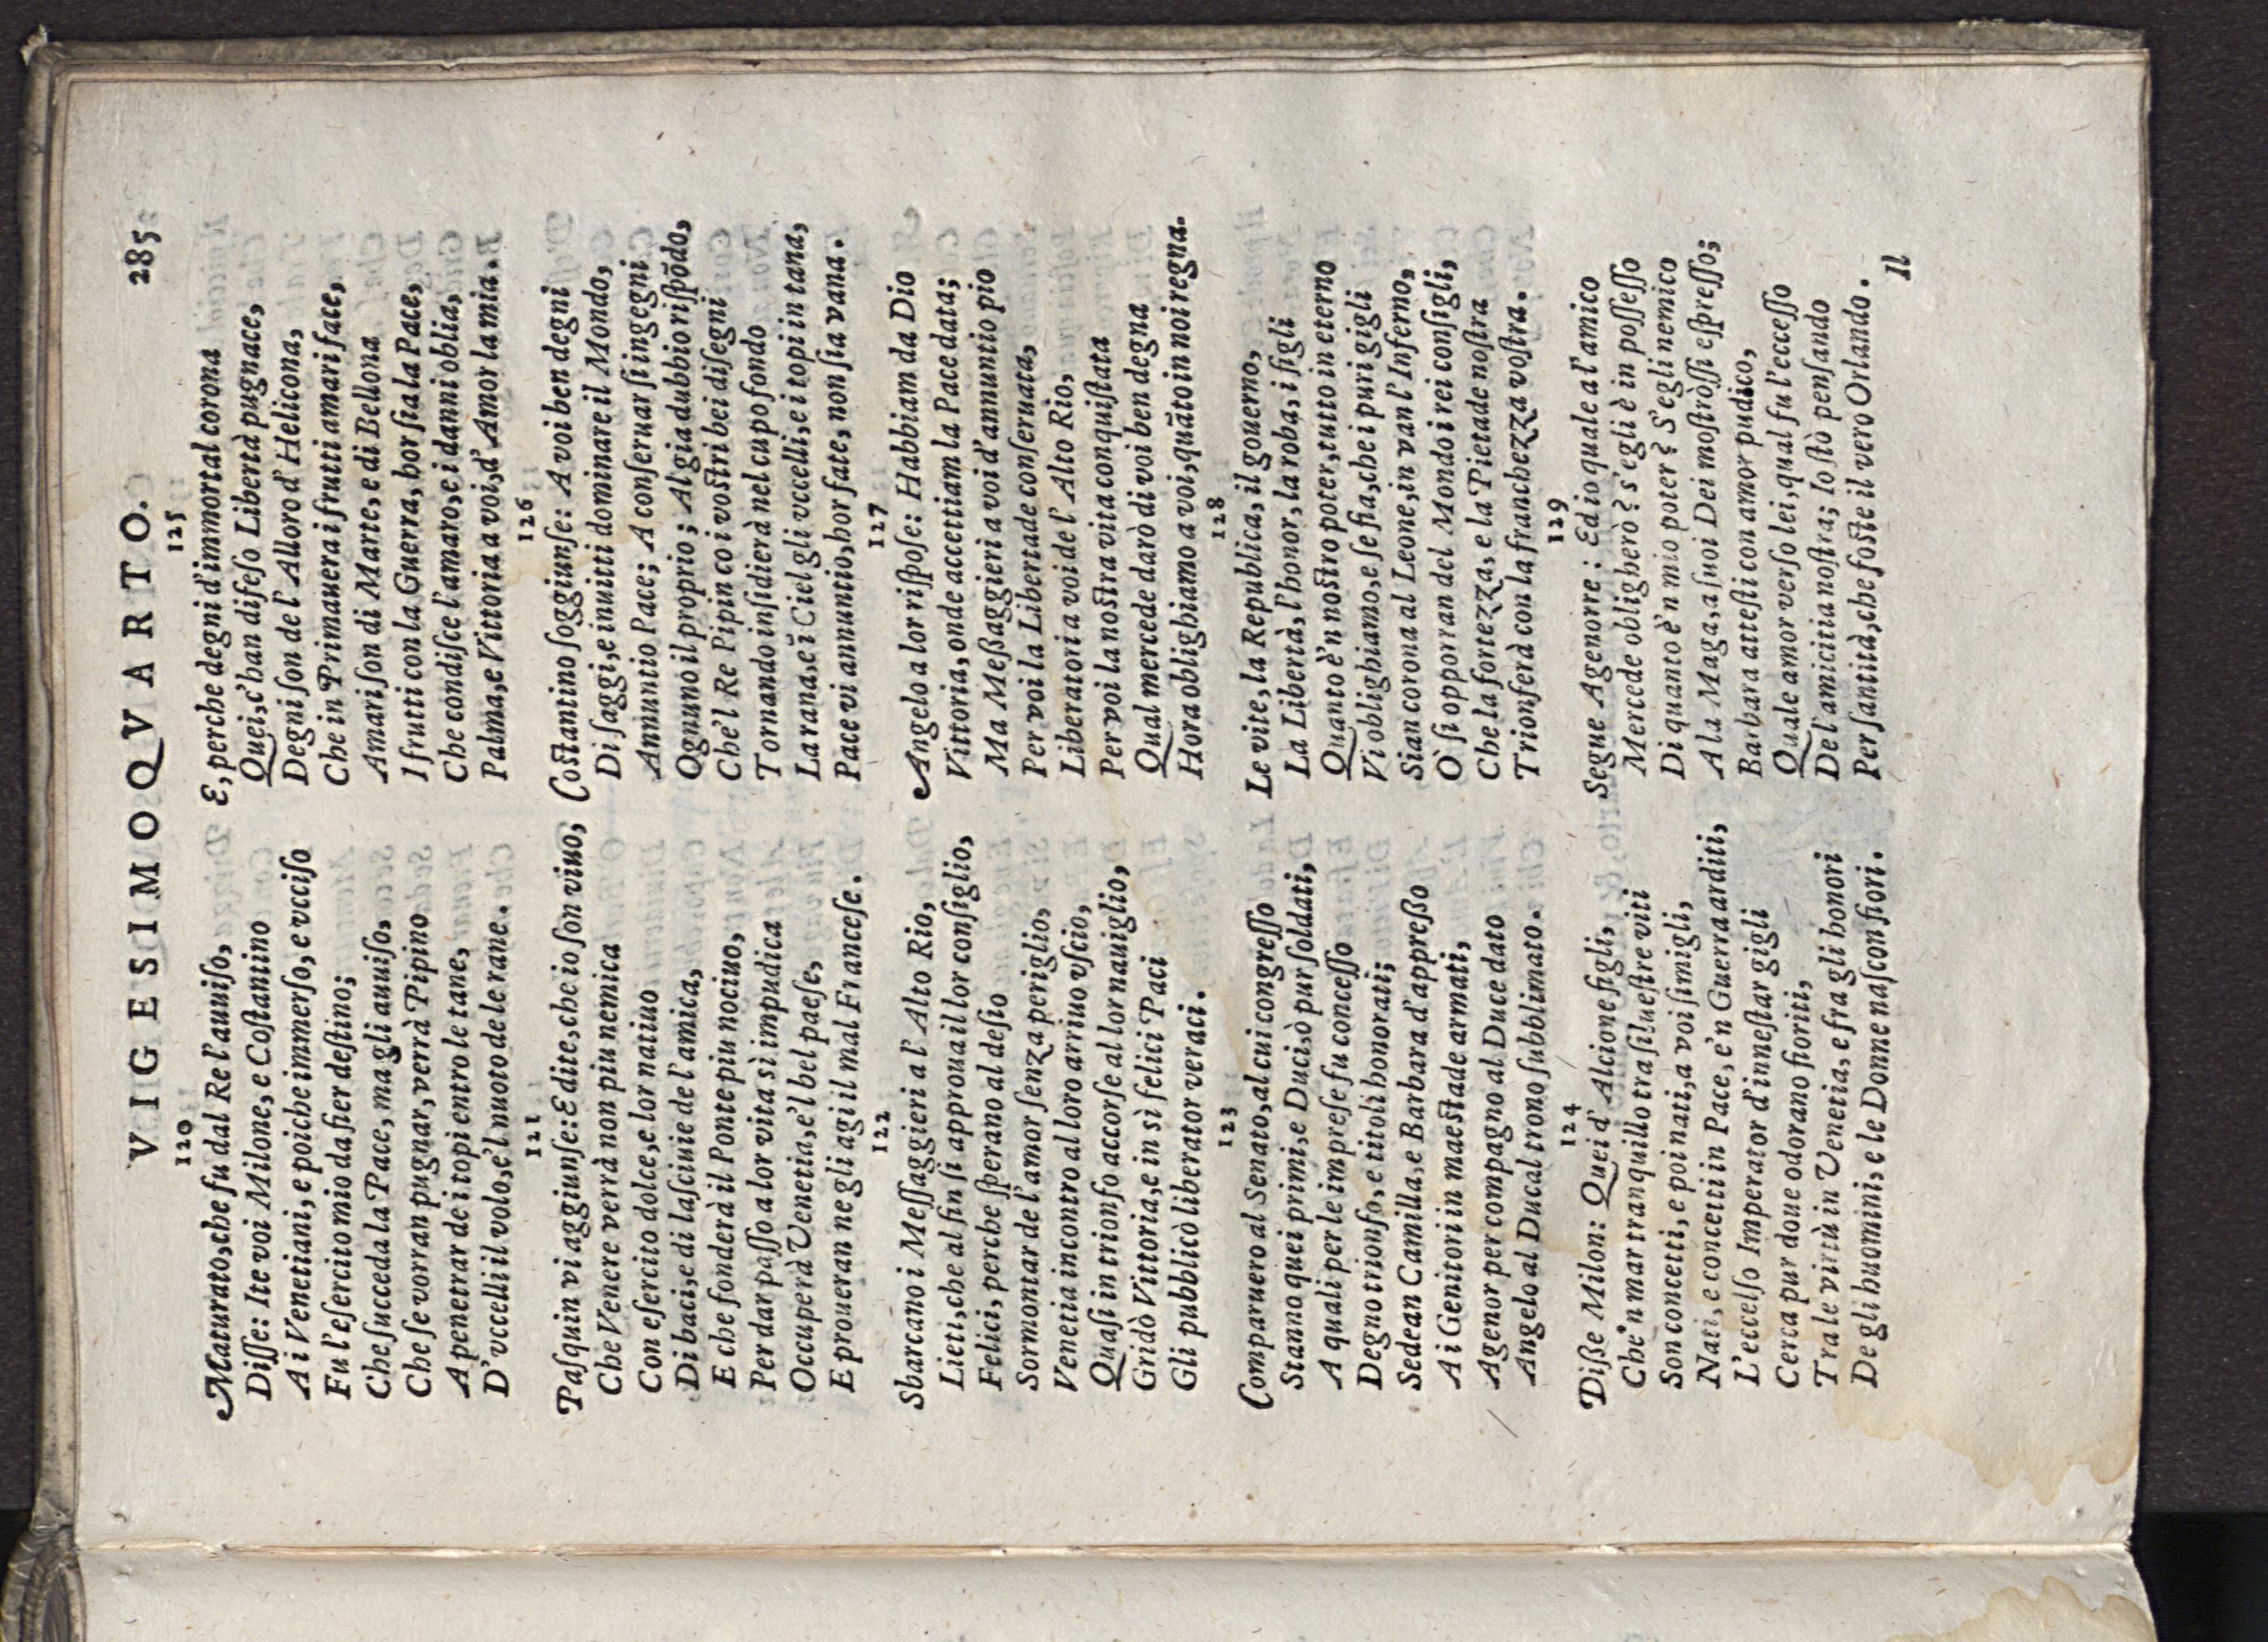 VIGESIMOQVARTO. 285
120
Maturato, che fu dal Re l'auuiſo,
Diſſe: Ite voi Milone, e Coſtantino
A i Venetiani, e poiche immerſo, e vcciſo
Fu l'eſercito mio da fier deſtino;
Che ſucceda la Pace, ma gli auuiſo,
Che ſe vorran pugnar, verrà Pipino
A penetrar de i topi entro le tane,
D'vccelli il volo, e'l nuoto de le rane.
121
Paſquin vi aggiunſe: E dite, che io ſon viuo,
Che Venere verrà non piu nemica
Con eſercito dolce, e lor natiuo
Di baci, e di laſciuie de l'amica,
E che fonderà il Ponte piu nociuo,
Per dar paſſo a lor vita sì impudica
Occuperà Venetia, e'l bel paeſe,
E proueran ne gli agi il mal Franceſe.
122
Sbarcano i Meſſaggieri a l'Alto Rio,
Lieti, che al fin ſi approua il lor conſiglio,
Felici, perche ſperano al deſio
Sormontar de l'amor ſenza periglio,
Venetia incontro al loro arriuo vſcio,
Quaſi in trionfo accorſe al lor nauiglio,
Gridò Vittoria, e in sì felici Paci
Gli pubblicò liberator veraci.
123
Comparuero al Senato, al cui congreſſo
Stanno quei primi, e Duci, ò pur ſoldati,
A quali per le impreſe fu conceſſo
Degno trionfo, e titoli honorati;
Sedean Camilla, e Barbara d'appreſſo
A i Genitori in maeſtade armati,
Agenor per compagno al Duce dato
Angelo al Ducal trono ſubblimato.
124
Diſſe Milon: Quei d'Alcione figli,
Che'n mar tranquillo tra ſilueſtre viti
Son concetti, e poi nati, a voi ſimigli,
Nati, e concetti in Pace, e'n Guerra arditi,
L'eccelſo Imperator d'inneſtar gigli
Cerca pur doue odorano fioriti,
Tra le virtù in Venetia, e fra gli honori
De gli huomini, e le Donne naſcon fiori.
125
E, perche degni d'immortal corona
Quei, c'han difeſo Libertà pugnace,
Degni ſon de l'Alloro d'Helicona,
Che in Primauera i frutti amari face,
Amari ſon di Marte, e di Bellona
I frutti con la Guerra, hor ſia la Pace,
Che condiſce l'amaro, e i danni oblia,
Palma, e Vittoria a voi, d'Amor la mia.
126
Coſtantino ſoggiunſe: A voi ben degni
Di ſaggi, e inuitti dominare il Mondo,
Annuntio Pace; A conſeruar ſi ingegni
Ognuno il proprio; Al gia dubbio riſpõdo,
Che'l Re Pipin co i voſtri bei diſegni
Tornando inſidierà nel cupo fondo
La rana, e ĩ Ciel gli vccelli, e i topi in tana,
Pace vi annuntio, hor fate, non ſia vana.
127
Angelo a lor riſpoſe: Habbiam da Dio
Vittoria, onde accettiam la Pace data;
Ma Meſſaggieri a voi d'annuntio pio
Per voi la Libertade conſeruata,
Liberatori a voi de l'Alto Rio,
Per voi la noſtra vita conquiſtata
Qual mercede darò di voi ben degna
Hora oblighiamo a voi, quãto in noi regna.
128
Le vite, la Republica, il gouerno,
La Libertà, l'honor, la roba, i figli
Quanto è'n noſtro poter, tutto in eterno
Vi oblighiamo, e ſe fia, che i puri gigli
Sian corona al Leone, in van l'Inferno,
O' ſi opporran del Mondo i rei conſigli,
Che la fortezza, e la Pietade noſtra
Trionferà con la franchezza voſtra.
129
Segue Agenorre: Ed io quale a l'amico
Mercede obligherò? s'egli è in poſſeſſo
Di quanto è'n mio poter? S'egli nemico
A la Maga, a ſuoi Dei moſtròſſi eſpreſſo;
Barbara atteſti con amor pudico,
Quale amor verſo lei, qual fu l'ecceſſo
De l'amicitia noſtra; Io ſtò penſando
Per ſantità, che foſte il vero Orlando.
Il